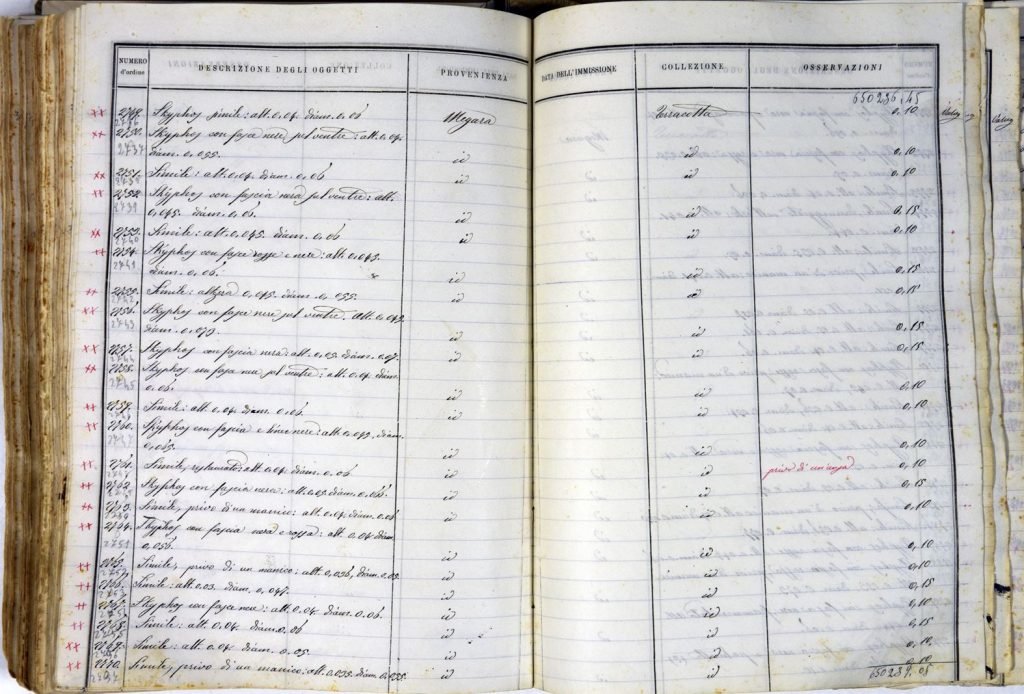 NUMERO d'ordine DESCRIZIONE DEGLI OGGETTI PROVENIENZA DATA DELL'IMMISSIONE COLLEZIONE OSSERVAZIONI
650286,45
2749. Skyphos simile: alt. 0,04. diam. 0,06 Megara Terracotta 0,10
2750. Skyphos con fasce nere sul ventre: alt. 0,04.
2737 diam. 0,055. id id 0,10
2751. Simile: alt. 0,04. diam. 0,06 id id 0,10
2752. Skyphos con fascia nera sul ventre: alt.
2739 0,045. diam. 0,06. id id 0,15
2753. Simile: alt. 0,045. diam. 0,06 id id 0,10
2740
2754. Skyphos con fasce rosse e nere: alt. 0,045.
2741 diam. 0,06. id id 0,15
2755. Simile: altezza 0,045. diam. 0,055. id id 0,15
2742
2756. Skyphos con fasce nere sul ventre. alt. 0,042
2743 diam. 0,075. id id 0,15
2757. Skyphos con fascia nera: alt. 0,05. diam. 0,07. id id 0,15
2744
2758. Skyphos con fasce nere sul ventre: alt. 0,04. diam.
2745 0,06. id id 0,10
2759. Simile: alt. 0,04. diam. 0,06. id id 0,10
2760. Skyphos con fascia e linee nere: alt. 0,045, diam.
2747 0,065. id id 0,10
2761. Simile, restaurato: alt. 0,04. diam. 0,06 id id privo di un'ansa 0,10
2762. Skyphos con fascia nera: alt. 0,05. diam. 0,06. id id 0,15
2763. Simile, privo di un manico: alt. 0,04. diam. 0,06 id id 0,10
2764. Skyphos con fascia nera e rossa: alt. 0,04. diam.
2751 0,056. id id 0,10
2765. Simile, privo di un manico: alt. 0,036, diam. 0,05. id id 0,10
2766. Simile: alt. 0,03. diam. 0,047. id id 0,15
2767. Skyphos con fasce nere: alt. 0,04. diam. 0,06. id id 0,10
2768. Simile: alt. 0,04. diam. 0,06 id id 0,15
2769. Simile: alt. 0,04. diam. 0,05. id id 0,10
2770. Simile, privo di un manico: alt. 0,035. diam. 0,055. id id 0,10
650289,05